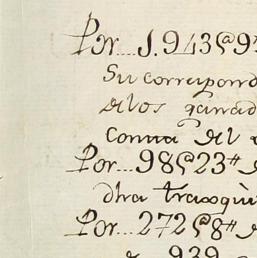 Por.... 1.943@9
Su correspond
de los ganad
Contra del
Por... 98@23#
dha traxqui
Por... 272@8#
939